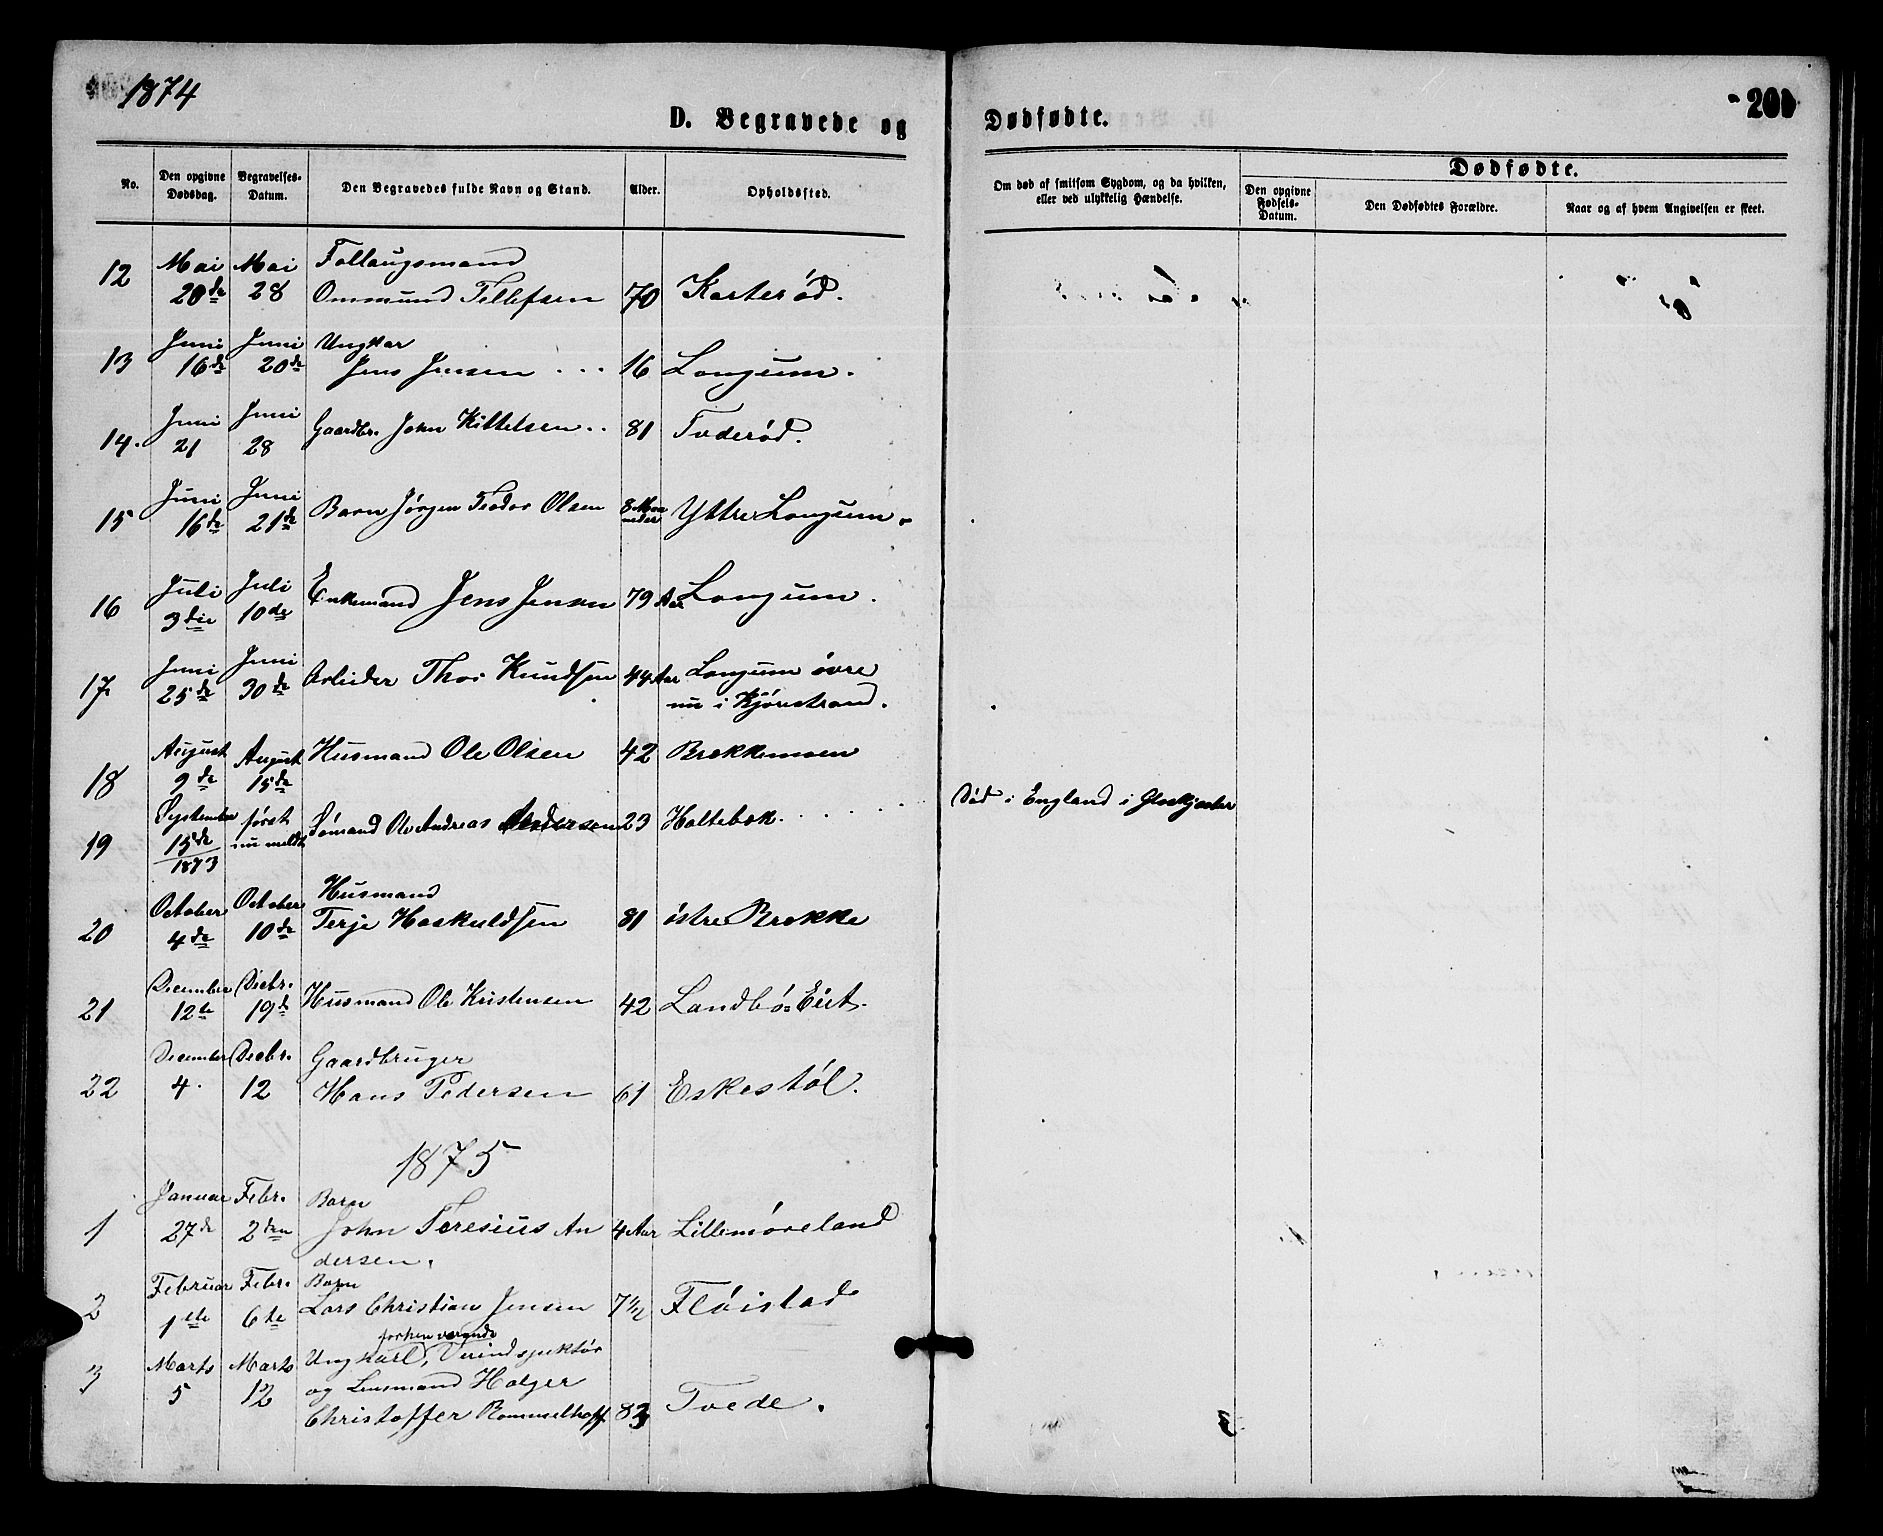 1874
201
D. Begravede og Dødfødte.
No.
Den opgivne Dødsdag.
Begravelses-Datum.
Den Begravedes fulde Navn og Stand.
Alder.
Opholdssted.
Om død af smitsom Sygdom, og da hvilken, eller ved ulykkelig Hændelse.
Dødfødte.
Den opgivne Fødsels-Datum.
Den Dødfødtes Forældre.
Naar og af hvem Angivelsen er skeet.
12 Mai 20de Mai 28 Follaugsmand
Ommund Tellefsen 70 Karterød.
13 Juni 16de Juni 20de Ungkar
Jens Jensen ... 16 Longum.
14. Juni 21 Juni 28 Gaardbr. John Kittelsen .. 81 Tvederød.
15 Juni 16de Juni 21de Barn Jørgen Teodor Olsen 8 Maaneder Yttre Longum.
16 Juli 3die Juli 10de Enkemand Jens Jensen 79 Aar Longum.
17. Juni 25de Juni 30de Arbeider Thor Knudsen 44 Aar Longum øvre
nu i Kjørestrand.
18 August 9de August 15de Husmand Ole Olsen 42 Brekkemoen
19 September 15de 1873 først nu meldt Sømand Ole Andreas Andersen 23 Holtebæk. Død i England i
20 October 4de October 10de Husmand
Terje Hoskuldsen 81 østre Brekke
21 December 12te Decbr. 19de Husmand Ole Kristensen 42 Landbø
22 December 4. Decbr. 12 Gaardbruger
Hans Pedersen 61 Eskestøl.
1875
1 Januar 27de Febr. 2den Barn
John Teresius An 4 Aar Lillemøreland
dersen.
2 Februar 1ste Febr. 6te Barn
Lars Christian Jensen 7 1/2 Fløistad
3 Marts 5 Marts 12 Ungkarl, forhen værende Veiindspektør
og Lensmand Holger
Christoffer Rommelhoff 83 Tvede.